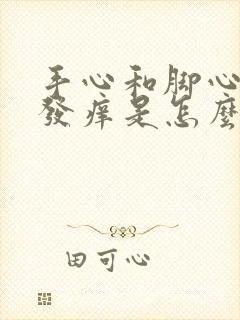 手心和脚心
發痒是怎麼
田可心